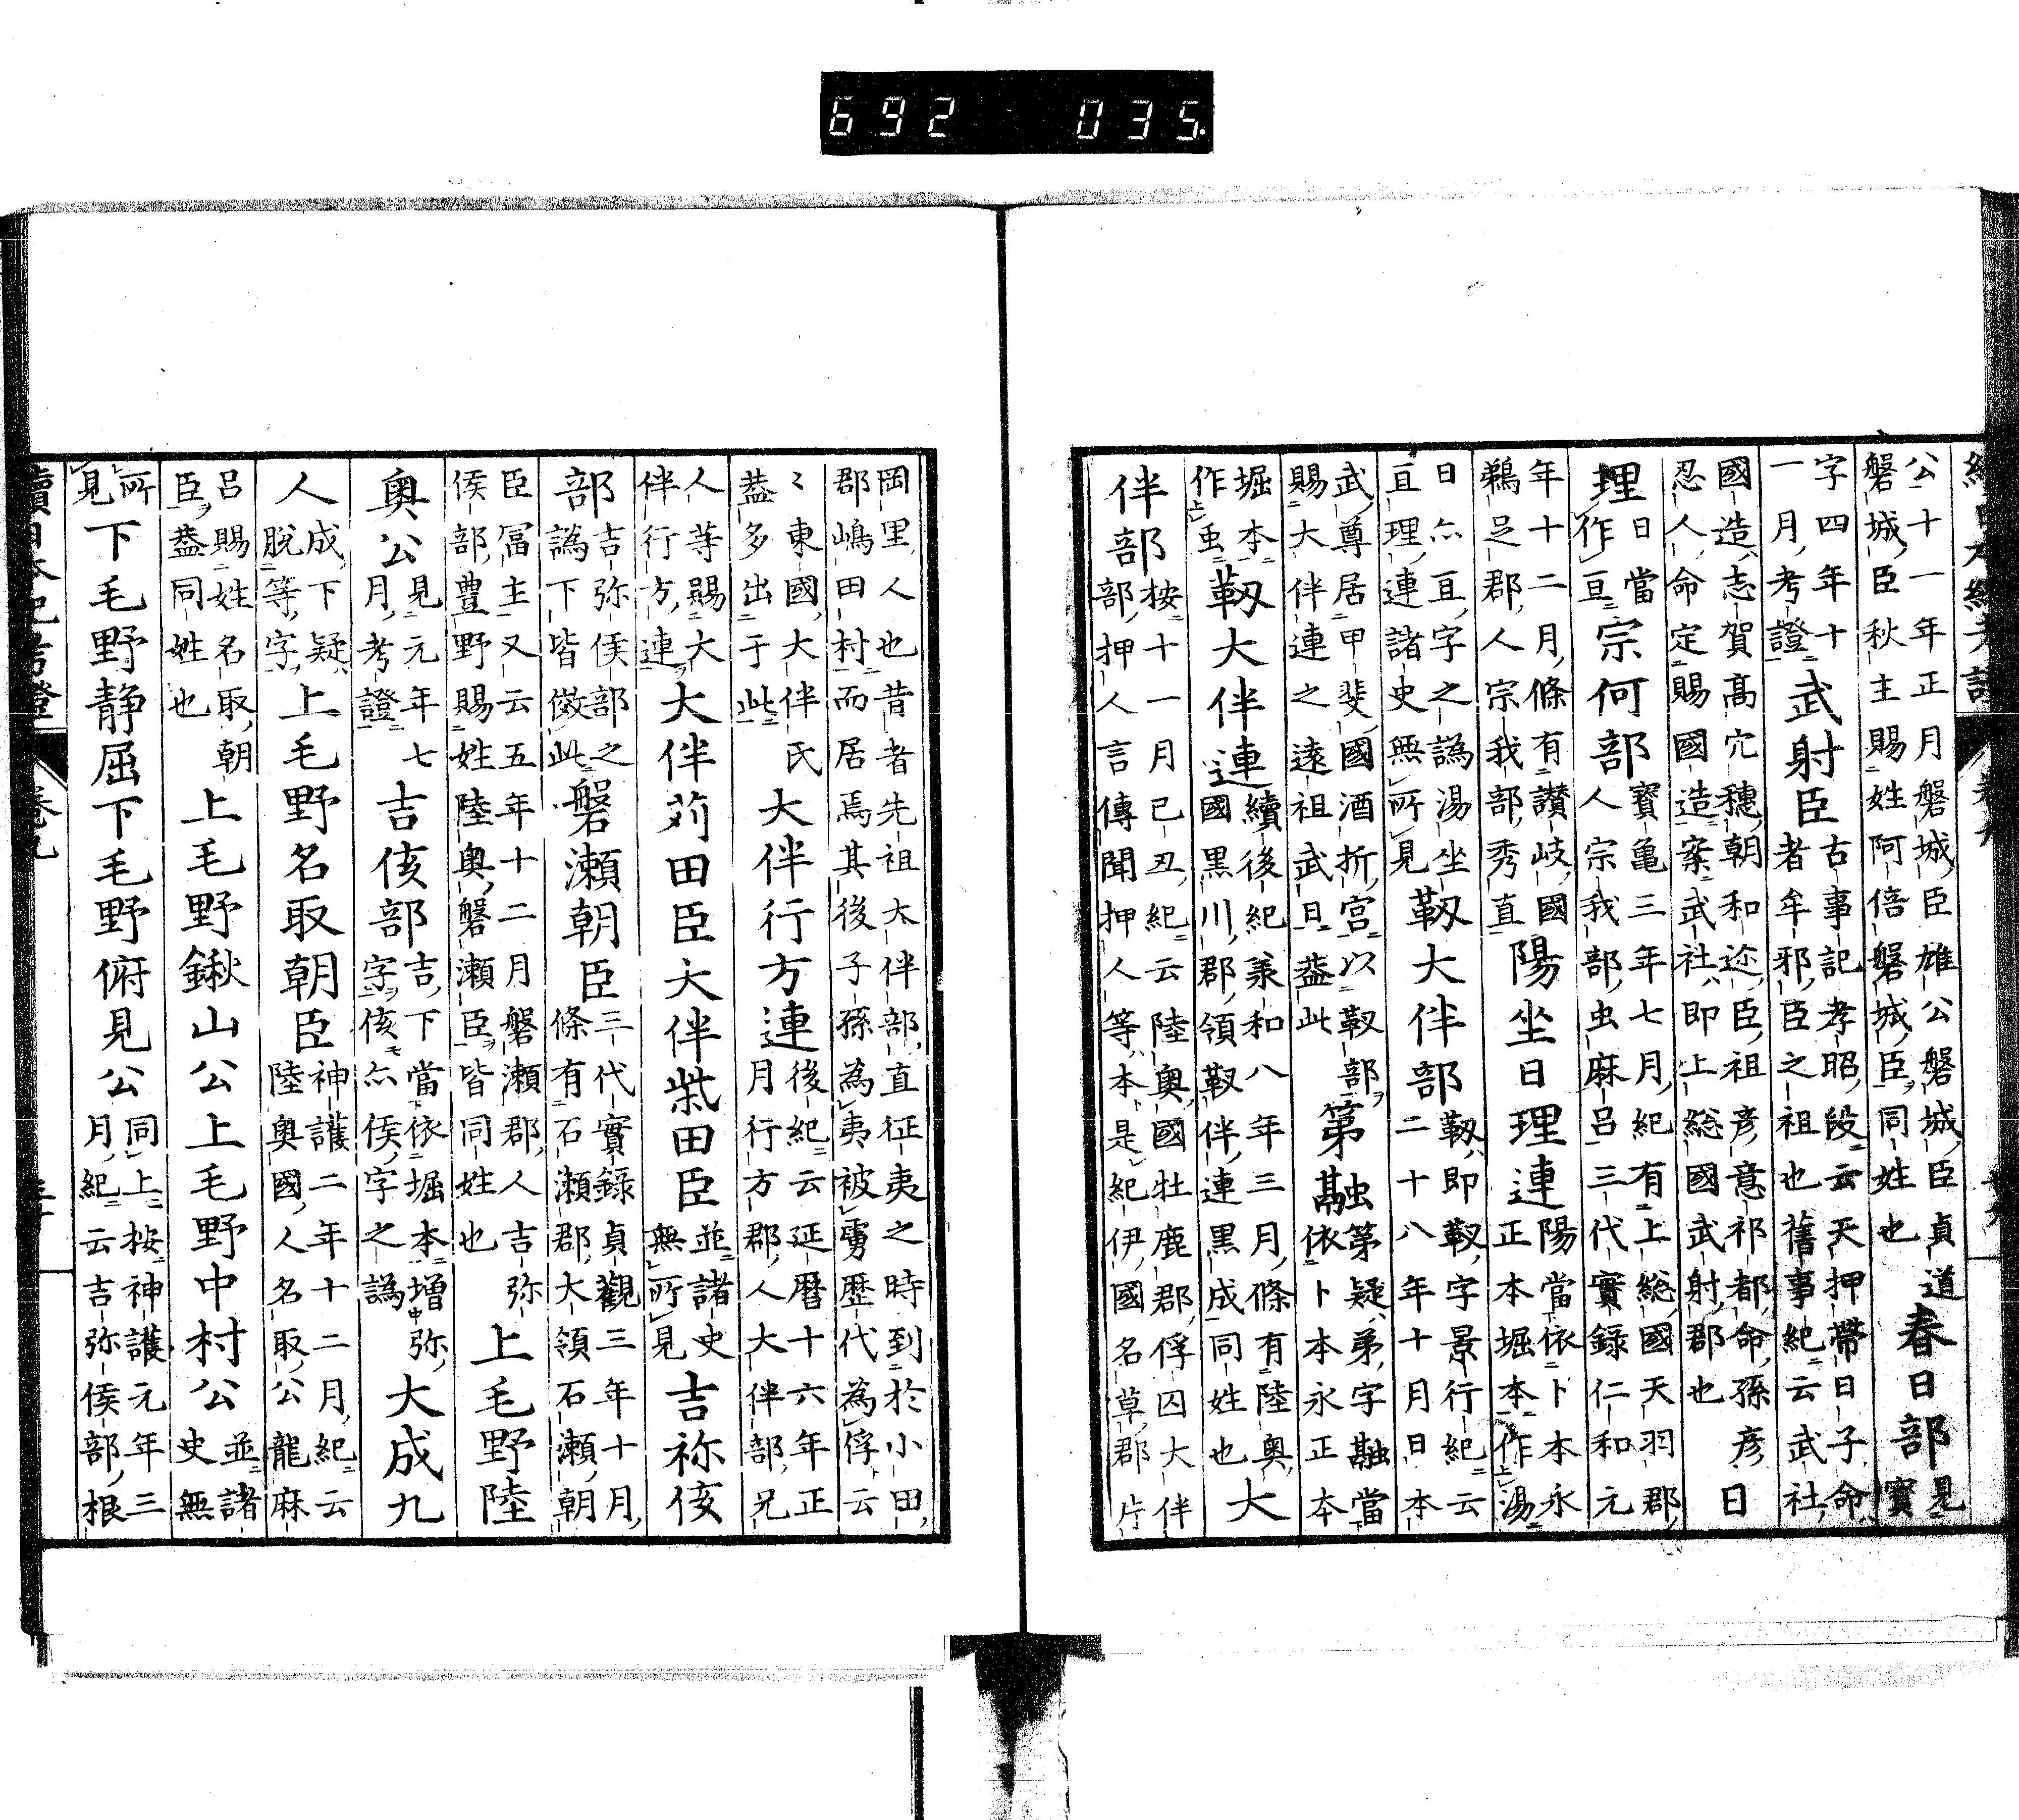 692 035
公十一年正月磐城臣雄公磐城臣貞道
磐城臣秋主賜姓阿倍磐城臣同姓也
春日部
見寶
字四年十
一月考證
武射臣
古事記孝昭段云天押帶日子命
者牟邪臣之祖也舊事紀云武社
國造志賀高穴穗朝和迩臣祖彥意祁都命孫彥
忍人命定賜國造案武社即上総國武射郡也
日
理
日當
作亘
宗何部
寳龜三年七月紀有上総國天羽郡
人宗我部虫麻呂三代實錄仁和元
年十二月條有讃岐國
鵜足郡人宗我部秀直
陽坐日理連
陽當依卜本永
正本堀本作湯
日亦亘字之譌湯坐
亘理連諸史無所見
靱大伴部
靱即靫字景行紀云
二十八年十月日本
武尊居甲斐國酒折宮以靫部
賜大伴連之遠祖武日葢此
第融
第疑弟字融當
依卜本永正本
堀本
作䖝
靱大伴連
續後紀義和八年三月條有陸奥
國黒川郡領靫伴連黒成同姓也
大
伴部
按十一月已丑紀云陸奥國牡鹿郡俘囚大伴
部押人言傳聞押人等本是紀伊國名草郡片
岡里人也昔者先祖大伴部直征夷之時到於小田
郡嶋田村而居焉其後子孫為夷被虜歷代為俘云
〻東國大伴氏
葢多出于此
大伴行方連
後紀云延暦十六年正
月行方郡人大伴部兄
人等賜大
伴行方連
大伴苅田臣大伴柴田臣
並諸史
無所見
吉祢侅
部
吉弥侯部之
譌下皆傚此
磐瀬朝臣
三代實錄貞觀三年十月
條有石瀬郡大領石瀬朝
臣冨主又云五年十二月磐瀬郡人吉弥
侯部豊野賜姓陸奥磐瀬臣皆同姓也
上毛野陸
奥公
見元年七
月考證
吉侅部
吉下當依堀本增弥
字侅亦侯字之譌
大成九
人
成下疑
脫等字
上毛野名取朝臣
神護二年十二月紀云
陸奥國人名取公龍麻
呂賜姓名取朝
臣葢同姓也
上毛野鍬山公上毛野中村公
並諸
史無
所
見
下毛野静屈下毛野俯見公
同上按神護元年三
月紀云吉弥侯部根
續日本紀考證
卷九